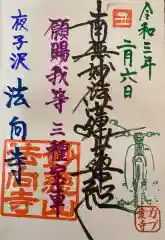 令和三年
二月六日
丑
南無妙法蓮華経
願賜我等 三種宝車
夜子沢 法向寺
法向寺